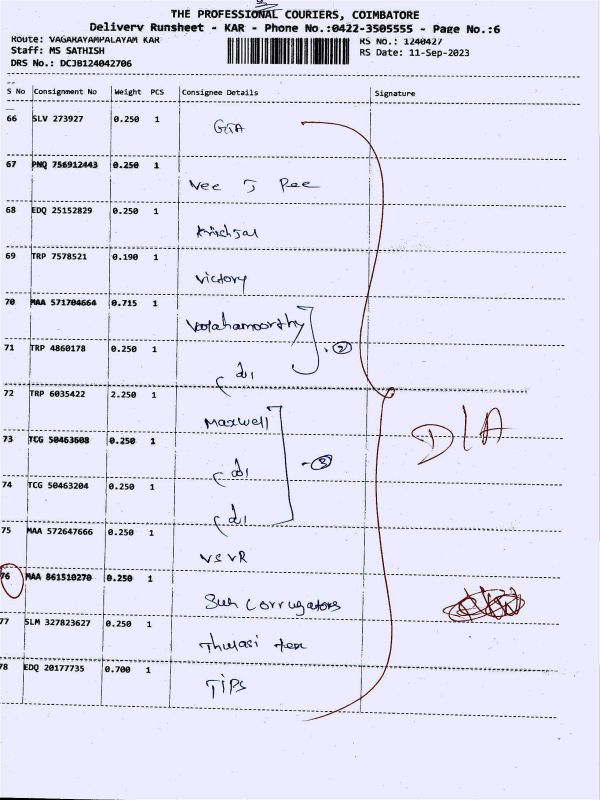 THE PROFESSIONAL COURIERS, COIMBATORE
Delivery Runsheet - KAR - Phone No.:0422-3505555 - Page No.:6
Route: VAGARAYAMPALAYAM KAR RS No.: 1240427
Staff: MS SATHISH RS Date: 11-Sep-2023
DRS No.: DCJB124042706
S No Consignment No Weight PCS Consignee Details Signature
66 SLV 273927 0.250 1
GTA
67 PNQ 756912443 0.250 1
Vee J Pee
68 EDQ 25152829 0.250 1
69 TRP 7578521 0.190 1
Victory
70 MAA 571704664 0.715 1
71 TRP 4860178 0.250 1
2
72 TRP 6035422 2.250 1
Maxwell
73 TCG 50463608 0.250 1
3
74 TCG 50463204 0.250 1
75 MAA 572647666 0.250 1
VSVR
76 MAA 861510270 0.250 1
Sun Corrugators
77 SLM 327823627 0.250 1
Thulasi tex
78 EDQ 20177735 0.700 1
TIPS
D/A